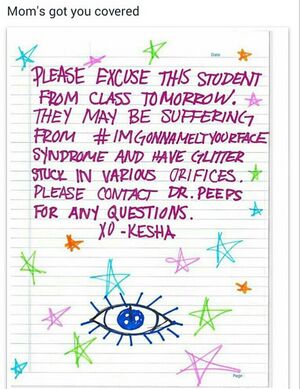 Mom's got you covered
Date
PLEASE EXCUSE THIS STUDENT
FROM CLASS TOMORROW.
THEY MAY BE SUFFERING
FROM #IMGONNAMELTYOURFACE
SYNDROME AND HAVE GLITTER
STUCK IN VARIOUS ORIFICES.
PLEASE CONTACT DR. PEEPS
FOR ANY QUESTIONS.
XO -KESHA
Page